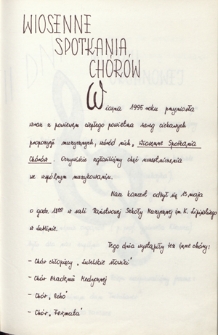 WIOSENNE
SPOTKANIA
CHÓRÓW
Wiosna 1995 roku przyniosła
wraz z powiewem ciepłego powietrza szereg ciekawych
propozycji muzycznych, wśród nich „Wiosenne Spotkania
Chórów". Oczywiście zgłosiliśmy chęć uczestniczenia
we wspólnym muzykowaniu.
Nasz koncert odbył się 13 maja
o godz. 18⁰⁰ w sali Państwowej Szkoły Muzycznej im. K. Lipińskiego
w Lublinie.
Tego dnia wystąpiły też inne chóry:
- Chór chłopięcy „Lubelskie słowiki"
- Chór Akademii Medycznej
- Chór „Echo"
- Chór